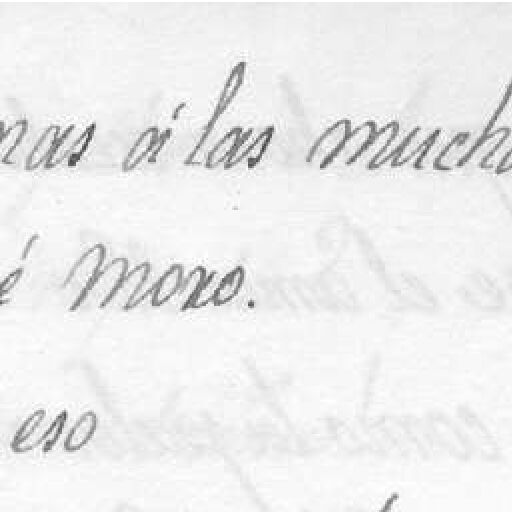 mas á las mucha
é Moro.
eso